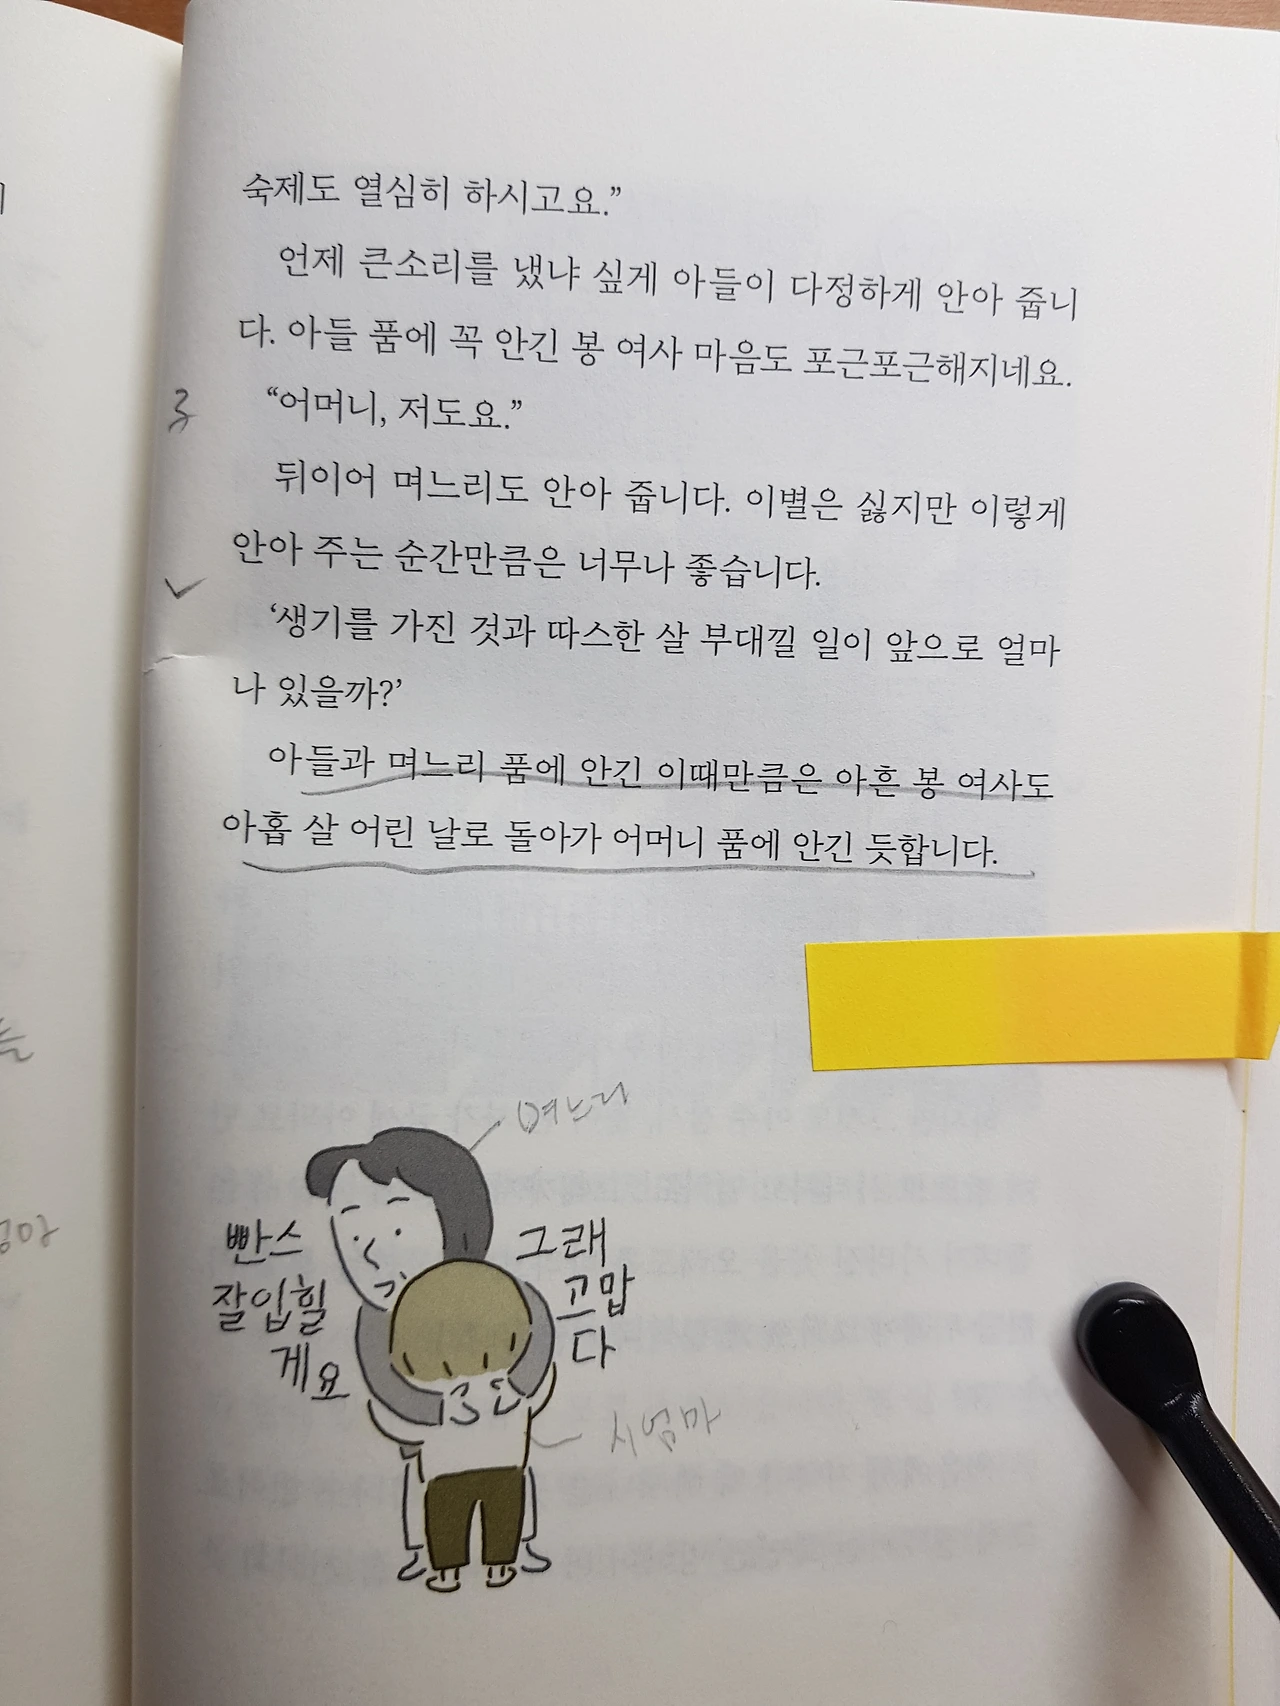 숙제도 열심히 하시고요.”
언제 큰소리를 냈냐 싶게 아들이 다정하게 안아 줍니
다. 아들 품에 꼭 안긴 봉 여사 마음도 포근포근해지네요.
“어머니, 저도요.”
뒤이어 며느리도 안아 줍니다. 이별은 싫지만 이렇게
안아 주는 순간만큼은 너무나 좋습니다.
‘생기를 가진 것과 따스한 살 부대낄 일이 앞으로 얼마
나 있을까?’
아들과 며느리 품에 안긴 이때만큼은 아흔 봉 여사도
아홉 살 어린 날로 돌아가 어머니 품에 안긴 듯합니다.
며느리
빤스
잘입힐
게요
그래
고맙
다
시엄마